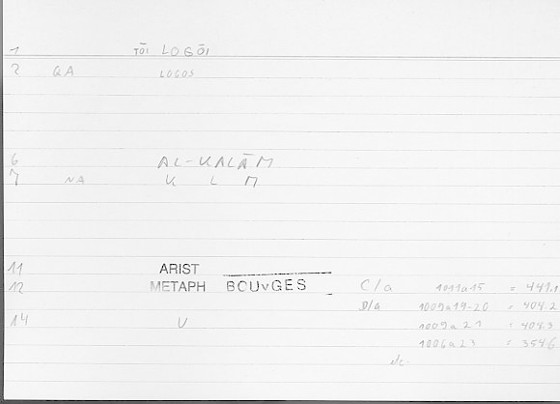 1 TŌI LOGŌI
2 GA LOGOS
6 AL-KALĀM
7 NA K L M
11 ARIST
12 METAPH BOUvGES C/a 1011a15 = 441.1
D/a 1009a19-20 = 404.2
14 V 1009a21 = 404.3
1006a23 = 354.6
etc.